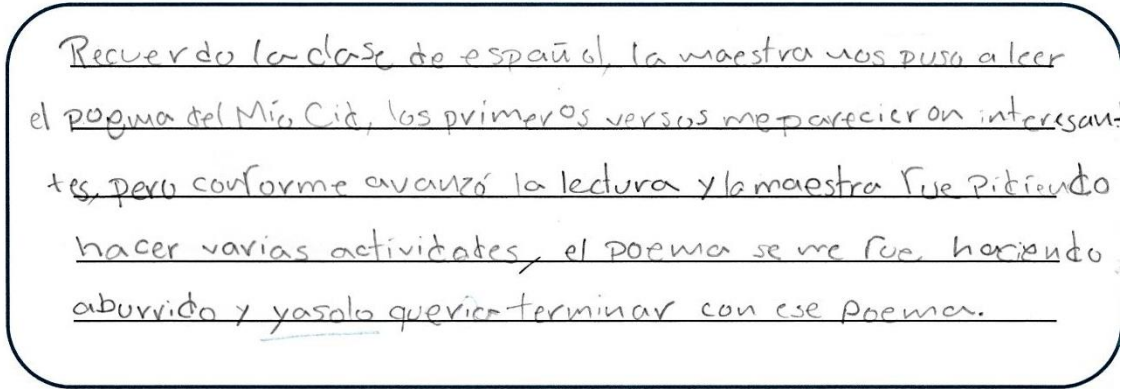 Recuerdo la clase de español, la maestra nos puso a leer
el poema del Mío Cid, los primeros versos me parecieron interesan-
tes, pero conforme avanzó la lectura y la maestra fue pidiendo
hacer varias actividades, el poema se me fue haciendo
aburrido y yasolo quería terminar con ese poema.